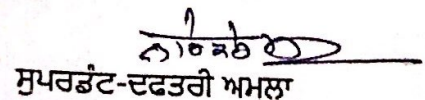 ਸੁਪਰਡੰਟ-ਦਫਤਰੀ ਅਮਲਾ